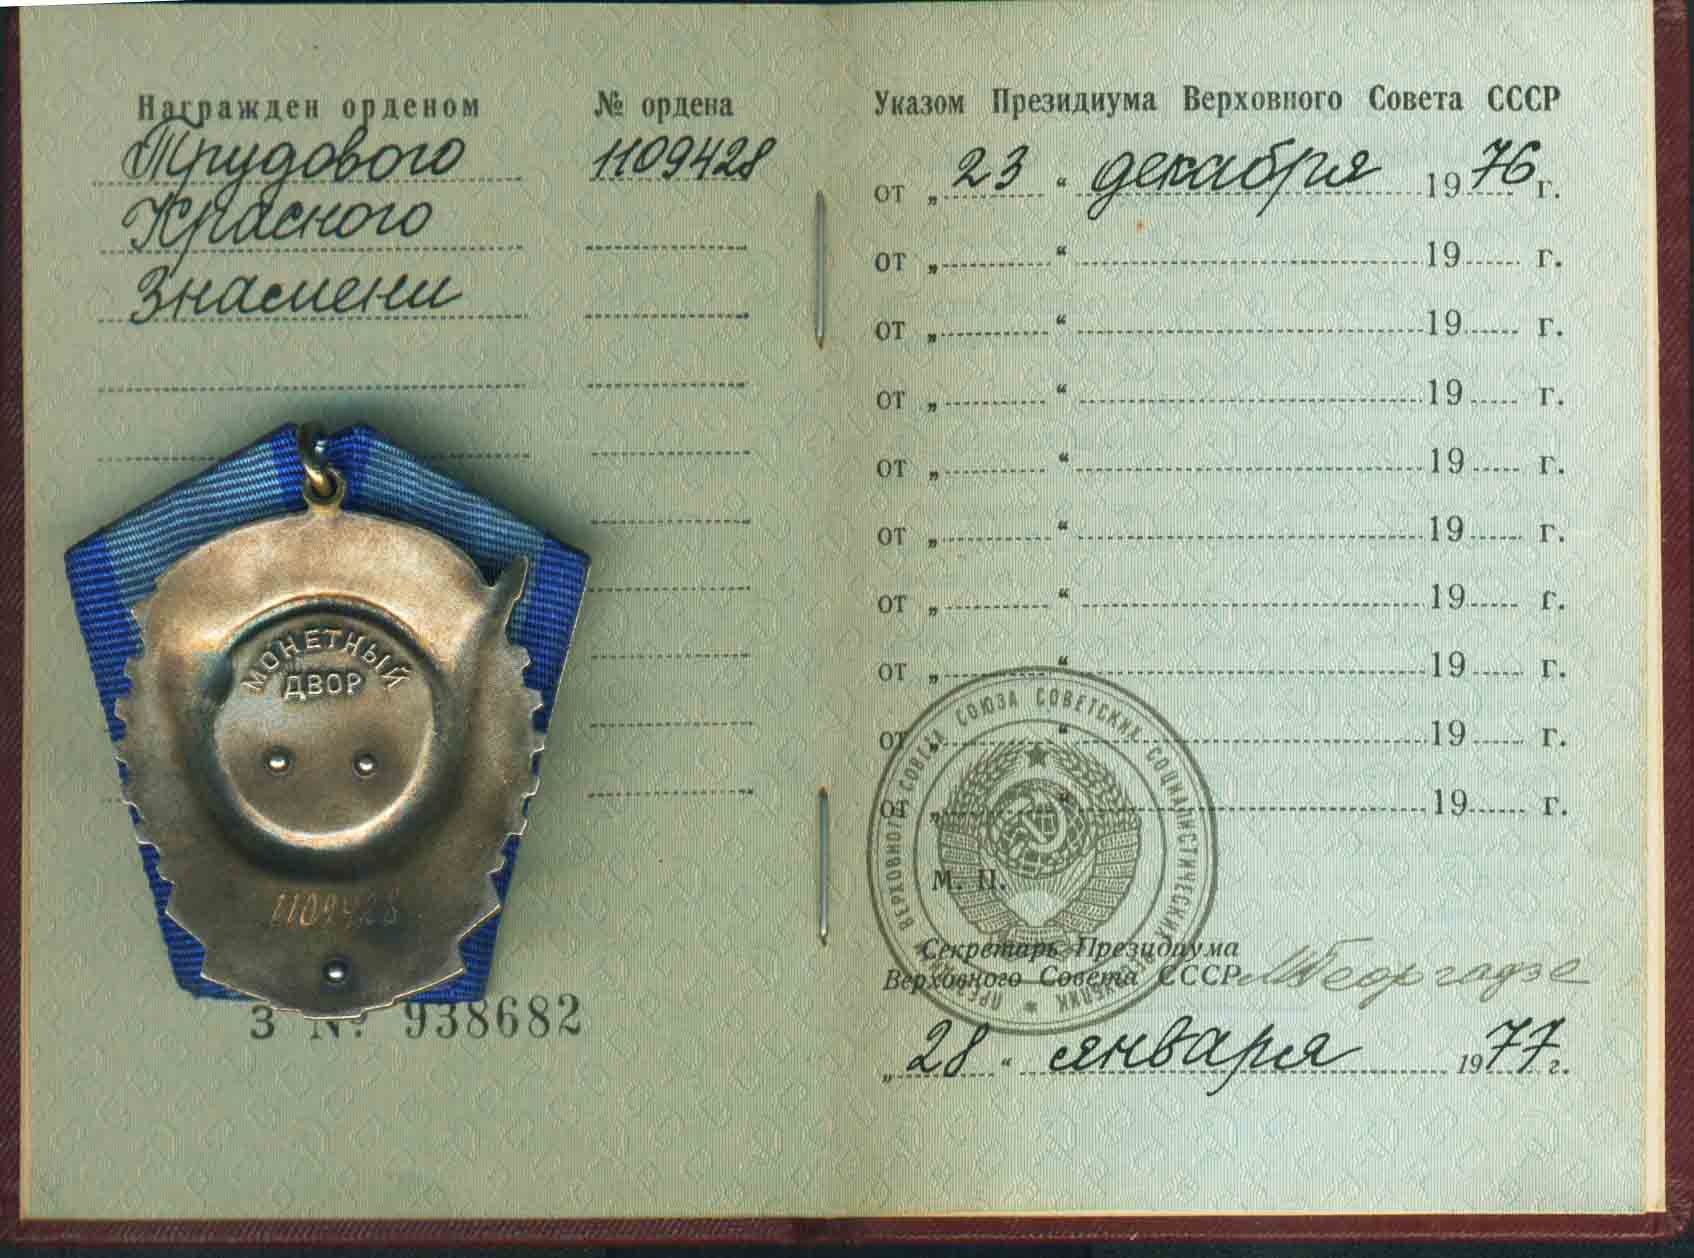 Награжден орденом
Трудового
Красного
Знамени
№ ордена
1109428
МОНЕТНЫЙ
ДВОР
1109428
З № 938682
Указом Президиума Верховного Совета СССР
от „ 23 “ декабря 1976 г.
от „ “ 19 г.
от „ “ 19 г.
от „ “ 19 г.
от „ “ 19 г.
от „ “ 19 г.
от „ “ 19 г.
от „ “ 19 г.
от „ “ 19 г.
от „ “ 19 г.
ВЕРХОВНОГО СОВЕТА СОЮЗА СОВЕТСКИХ СОЦИАЛИСТИЧЕСКИХ
М. П.
Секретарь Президиума
Верховного Совета СССР МГеоргадзе
„ 28 “ января 1977 г.